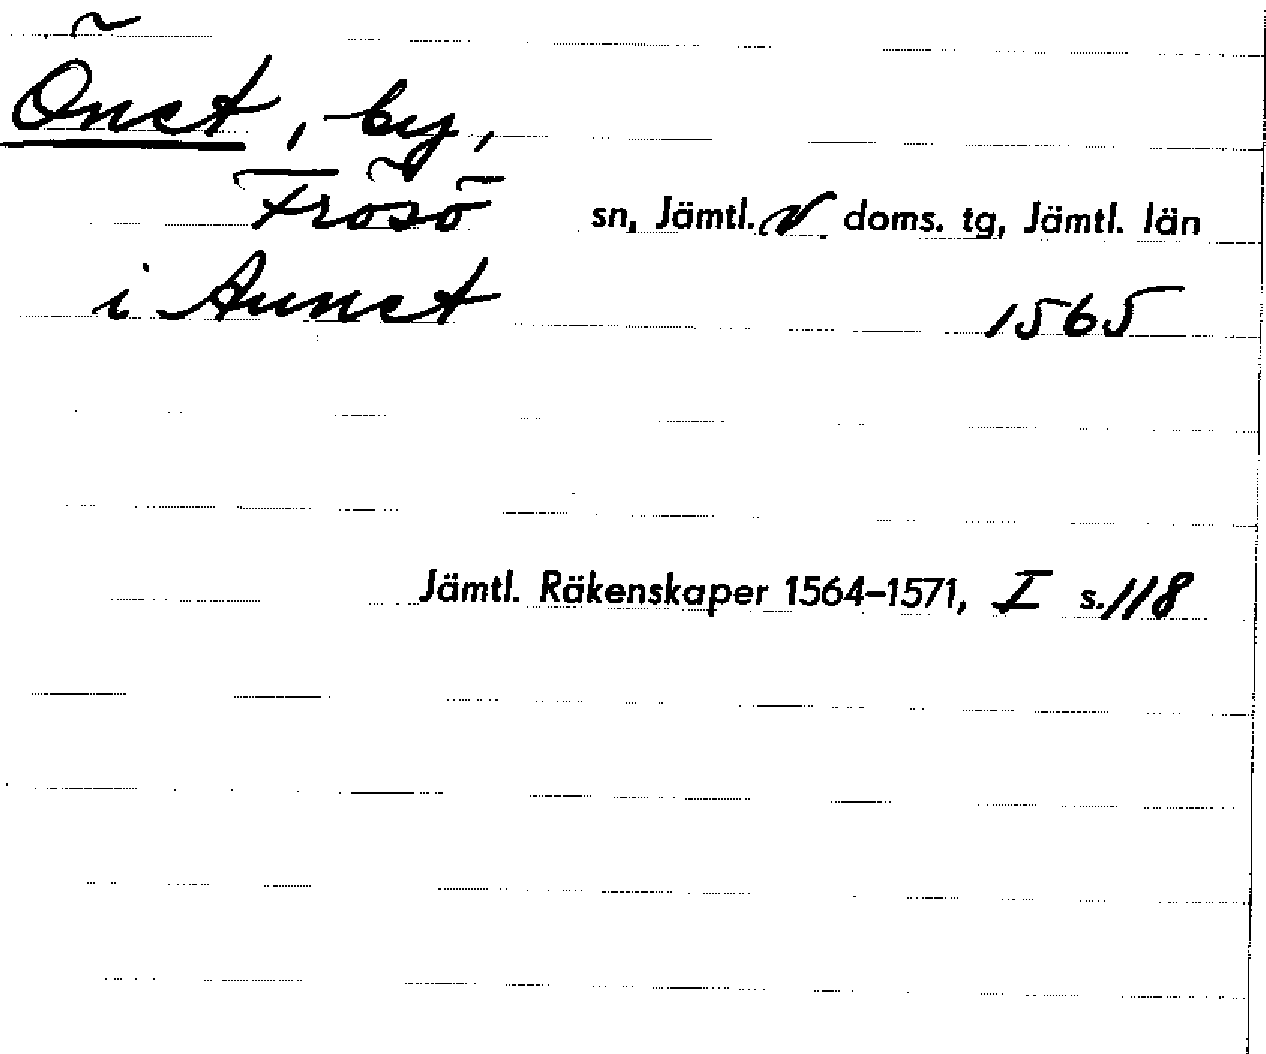 Önet, by,
Frösö sn, Jämtl. v doms. tg, Jämtl. län
i Aunet 1565
Jämtl. Räkenskaper 1564–1571, I s. 118